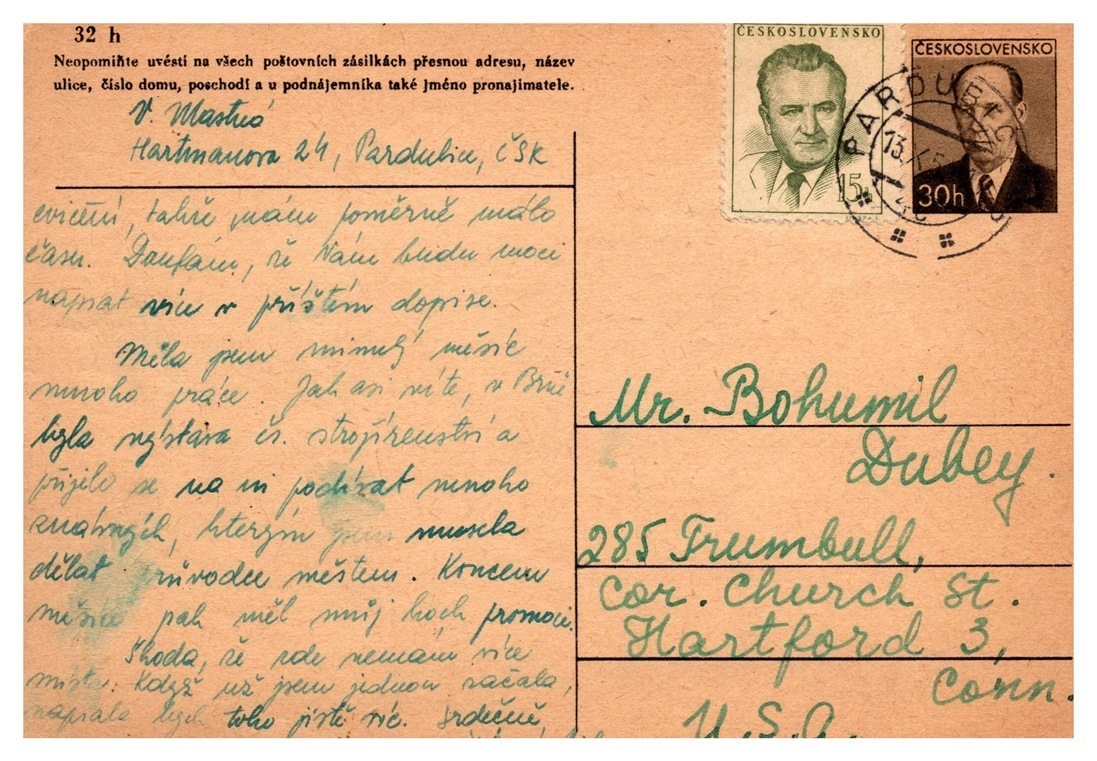 32 h
Neopomiňte uvésti na všech poštovních zásilkách přesnou adresu, název
ulice, číslo domu, poschodí a u podnájemníka také jméno pronajimatele.
V. Mastná
Hartmanova 24, Pardubice, ČSR
ČESKOSLOVENSKO
15h
ČESKOSLOVENSKO
30h
PARDUBICE
13.
cvičení, takže mám poměrně málo
času. Doufám, že Vám budu moci
napsat více v příštím dopise.
Měla jsem minulý měsíc
mnoho práce. Jak asi víte, v Brně
byla výstava čs. strojírenství a
přijelo se na ni podívat mnoho
známých, kterým jsem musela
dělat průvodce městem. Koncem
měsíce pak měl můj hoch promoci.
Škoda, že zde nemám více
místa. Když už jsem jednou začala,
napsala bych toho jistě víc. Srdečně
Mr. Bohumil
Dubey.
285 Trumbull,
Cor. Church St.
Hartford 3,
Conn.
U.S.A.